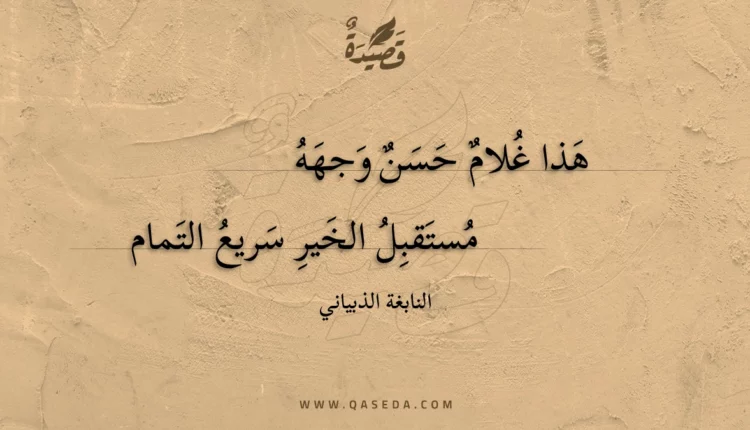 قَصِيدَةٌ
هَذا غُلامٌ حَسَنٌ وَجهَهُ
مُستَقبِلُ الخَيرِ سَريعُ التَمام
النابغة الذبياني
WWW.QASEDA.COM